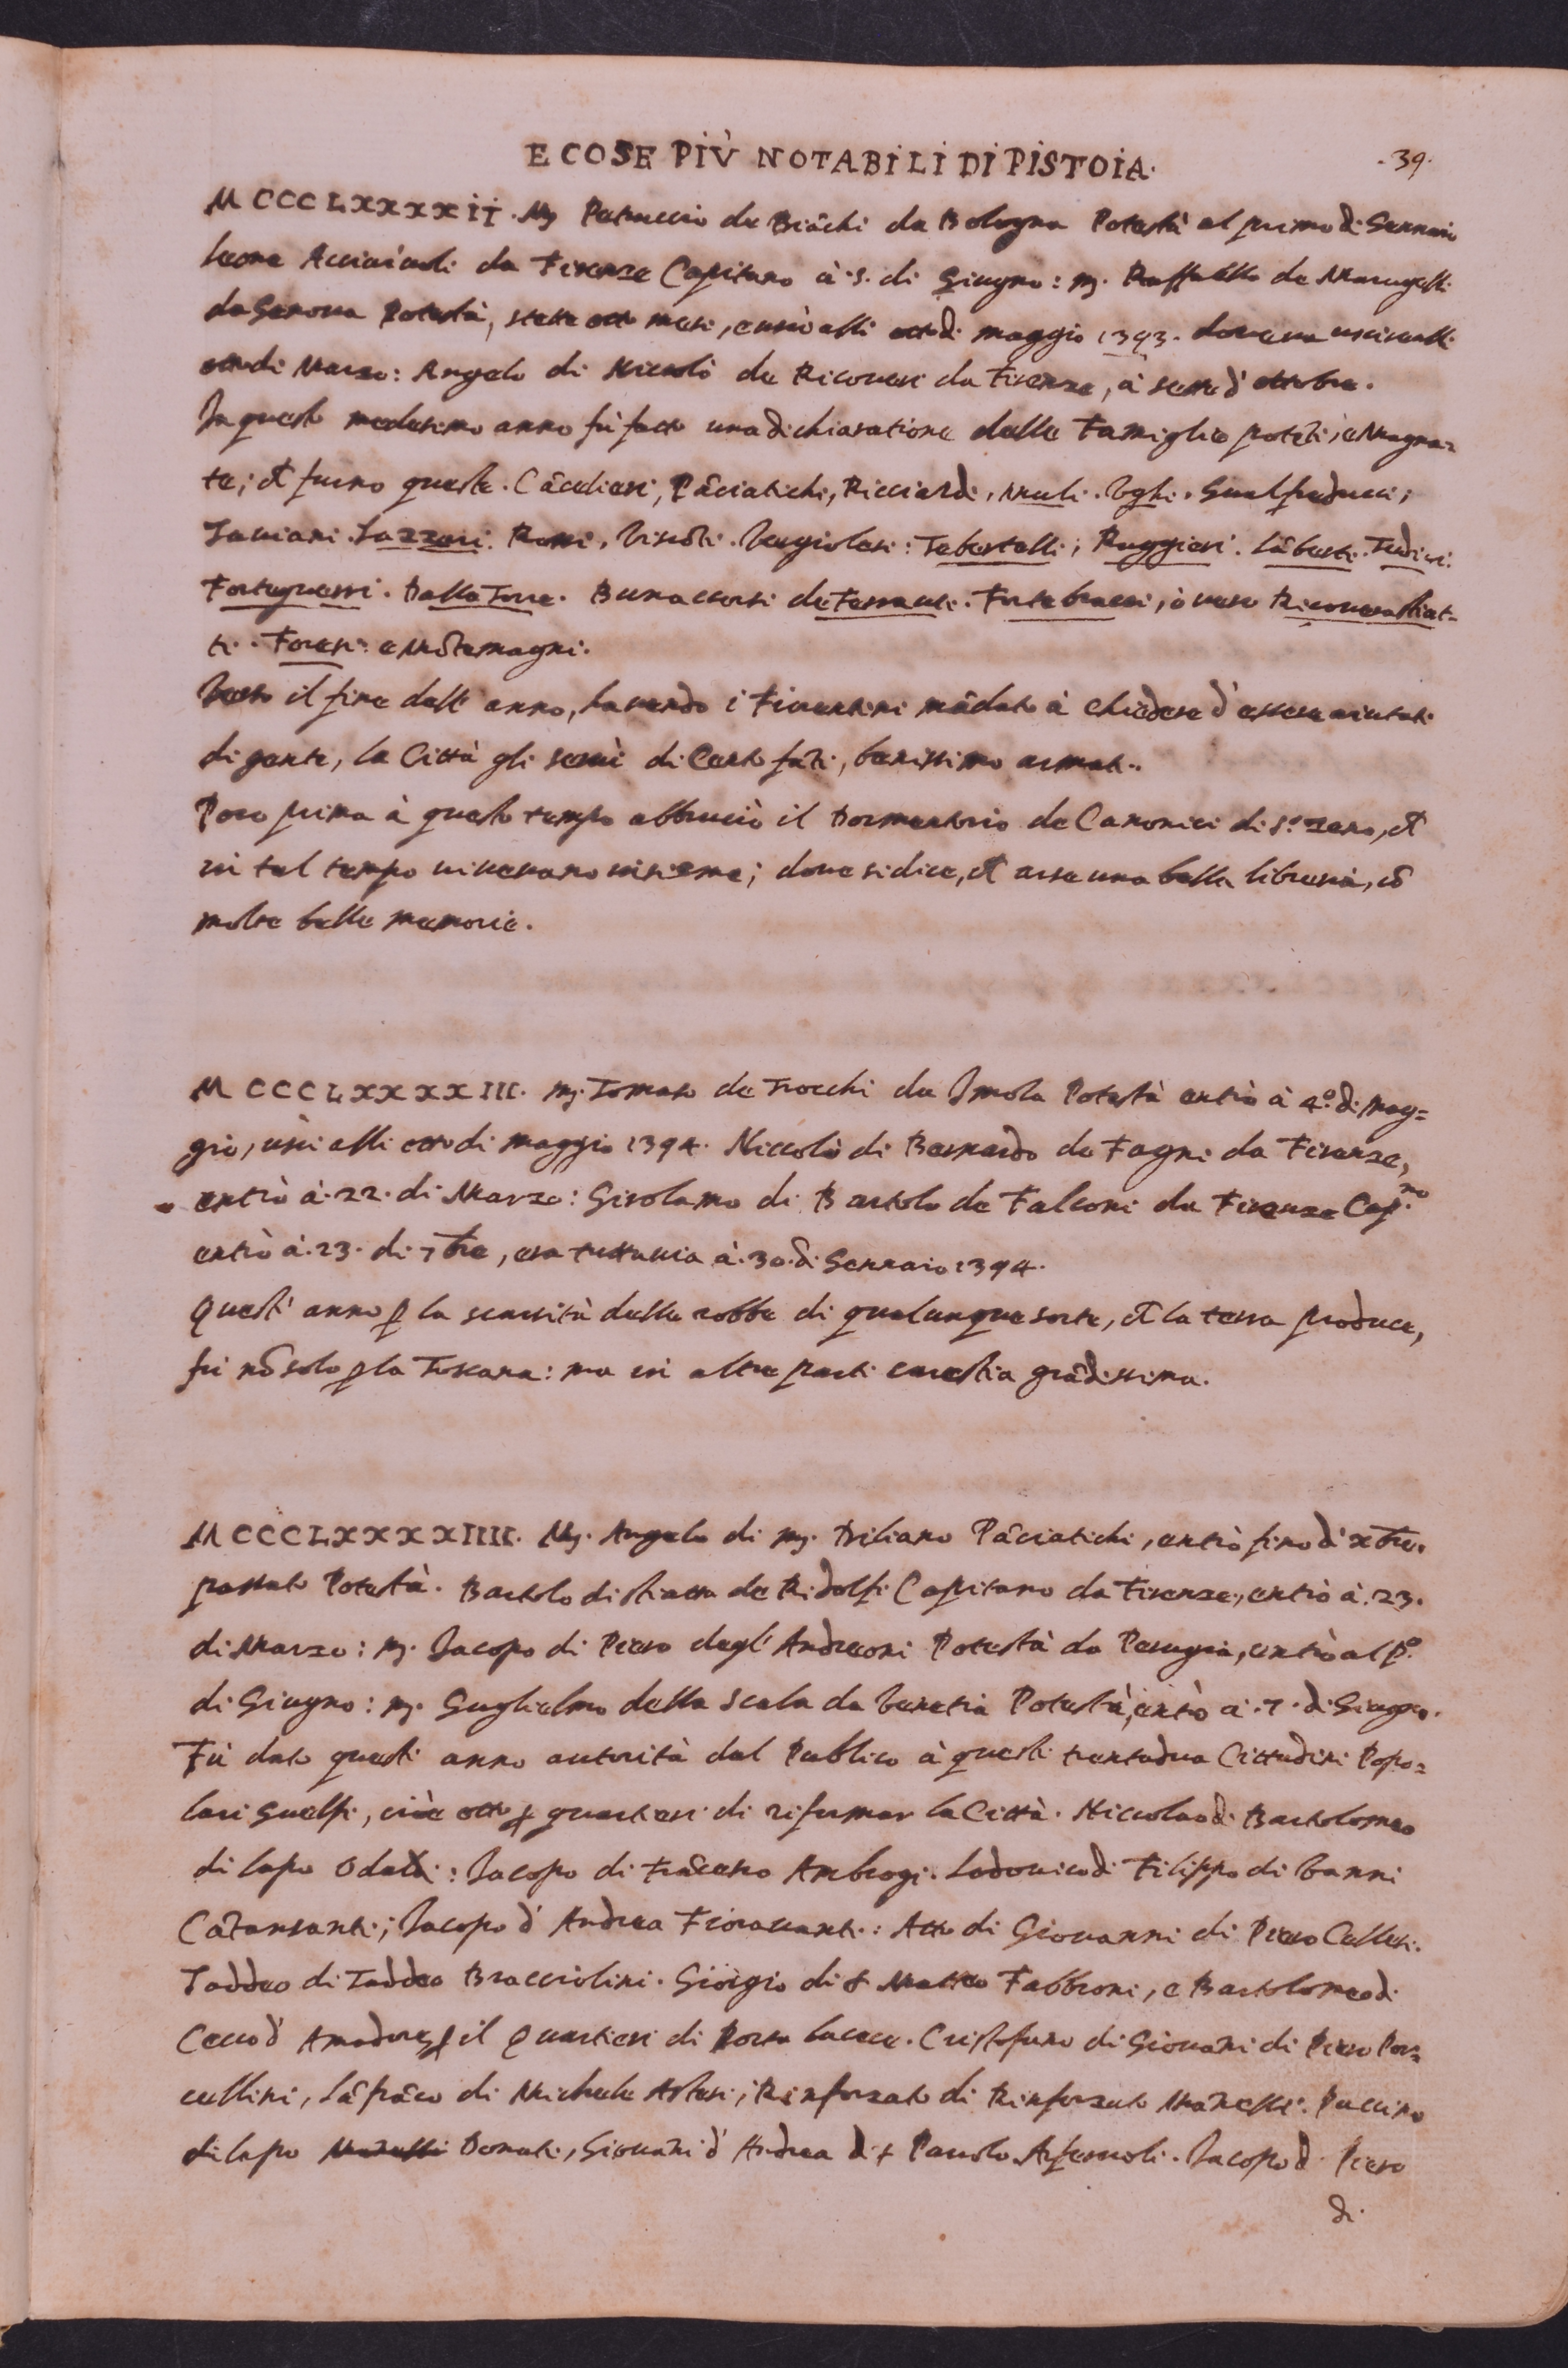 E COSE PIÙ NOTABILI DI PISTOIA. .39.
MCCCLXXXXII. Mʳ Petruccio de Biãchi da Bologna Potestà al primo di Gennaio
Leone Acciaiuoli da Firenze Capitano à .5. di Giugno: mʳ. Raffaello de Marugelli
da Genoua Potestà, stette otto mesi, e uscì alli otto di maggio 1393. doueua uscire alli
otto di Marzo: Angelo di Niccolò de Ricoueri da Firenze, à sette d'ottobre.
In questo medesimo anno fù fatto una dichiaratione delle Famiglie potẽti, e Magna=
te; et furno queste. Cãcellieri, Pãciatichi, Ricciardi, Muli. Vghi. Gualfreducci;
Tauiani. Lazzari. Rossi, Visõti. Vergiolesi: Tebertelli; Ruggieri. Lãberti. Tedici.
Forteguerri. Dalla Torre. Bonaccorsi de Ferraute. Fortebracci, ò uero Ricoueralliat=
ti. Foresi: e Mõtemagni.
Verso il fine dell'anno, hauendo i Fiorentini mãdato à chiedere d'essere aiutati
di gente, la Città gli seruì di Cento fãti, benissimo armati.
Poco prima à questo tempo abbruciò il Dormentorio de Canonici di S.º Zeno, et
in tal tempo uiueuano insieme; doue si dice, et arse una bella libreria, cõ
molte belle memorie.
MCCCLXXXXIII. mʳ. Tomaso de Trocchi da Imola Potestà entrò à 4.º di Mag=
gio, uscì alli otto di maggio 1394. Niccolò di Bernardo de Fagni da Firenze,
entrò à .22. di Marzo: Girolamo di Bartolo de Falconi da Firenze Cap.ⁿᵒ
entrò à .23. di 7bre, era tuttauia à .30. di Gennaio 1394.
Quest'anno ꝑ la scarsità delle robbe di qualunque sorte, et la terra produce,
fù nõ solo ꝑ la Toscana: ma in altre parti carestia grãdissima.
MCCCLXXXXIIII. Mʳ. Angelo di mʳ. Driliano Pãciatichi, entrò fino d'xbre.
passato Potestà. Bartolo di Stiatta de Ridolfi Capitano da Firenze, entrò à .23.
di Marzo: mʳ. Iacopo di Piero degl'Andreoni Potestà da Perugia, entrò al pº.
di Giugno: mʳ. Guglielmo della Scala da Venetia Potestà, entrò à .7. di Giugno.
Fù dato questi anno autorità dal Publico à questi trentadua Cittadini Popo=
lari Guelfi, cioè otto ꝑ quartieri di riformar la Città. Niccolao di Bartolomeo
di Lapo Odaldi: Iacopo di Frãcesco Ambrogi. Lodouico di Filippo di Vanni
Cãtansanti; Iacopo d'Andrea Fiorauanti: Atto di Giouanni di Piero Cellesi.
Taddeo di Taddeo Bracciolini. Giorgio di S Matteo Fabbroni, e Bartolomeo di
Cecco d'Amadore ꝑ il Quartieri di Porta Lucese. Cristofano di Giouãni di Piero Por=
cellini, Lãfrãco di Michele Astesi; Rinforzato di Rinforzato Manelli. Puccino
di Lapo Donati, Giouãni d'Andrea di S Pauolo Asfernoli. Iacopo di Piero
di